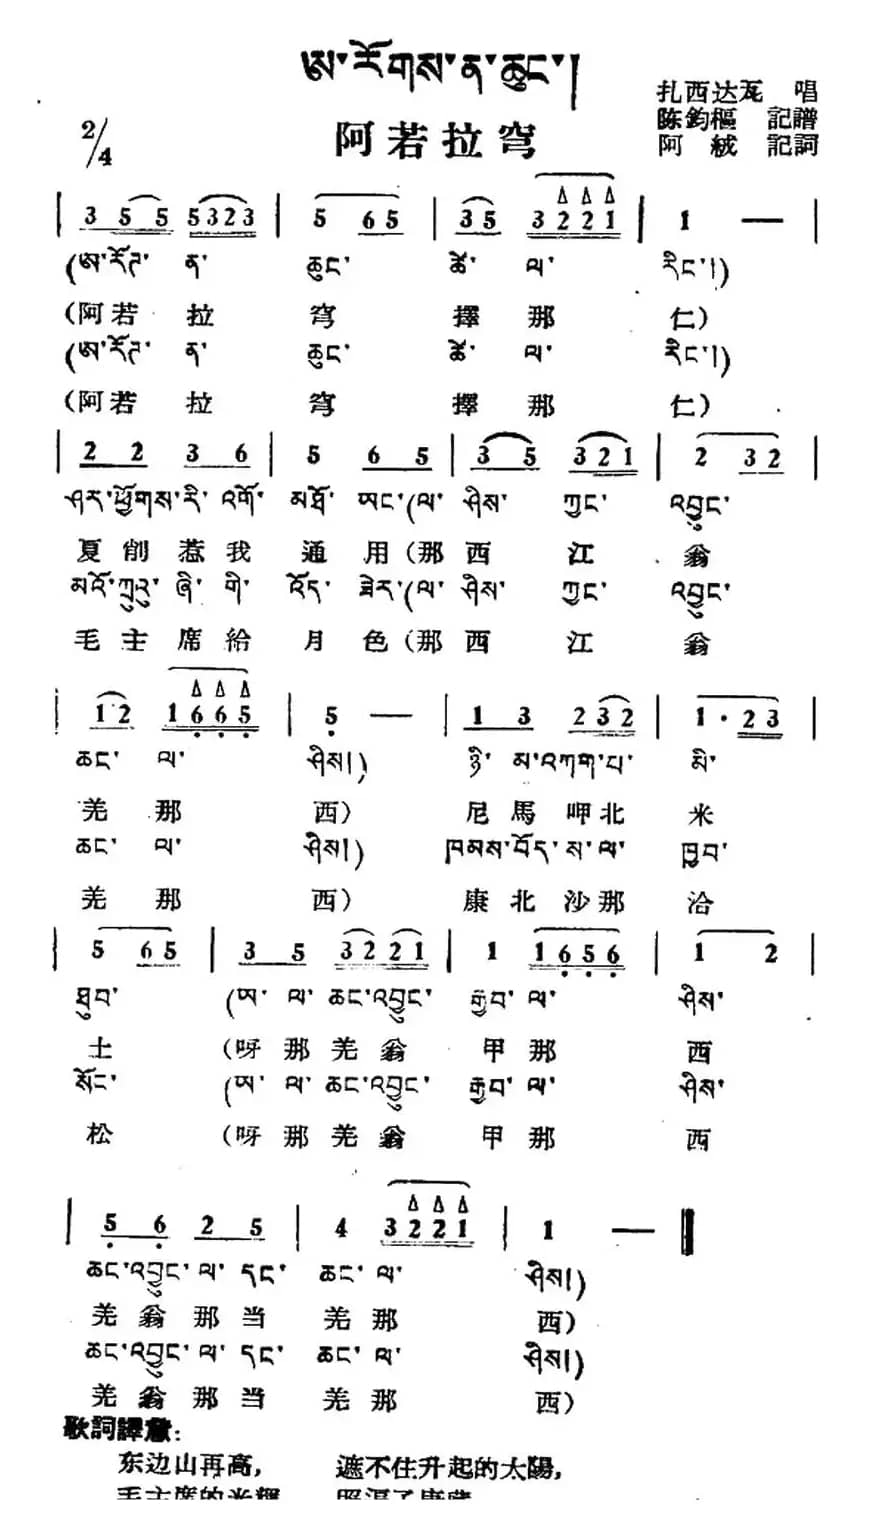 ཨ་རོགས་ན་ཆུང་།
扎西达瓦 唱
阿若拉穹
陈鈞樞 記譜
2/4
阿 絨 記詞
| 3 5 5 5323 | 5 65 | 35 3221 | 1 — |
(ཨ་རོཊ་ ན་ ཆུང་ ཚེ་ ལ་ རིང་།)
(阿若 拉 穹 擇 那 仁)
(ཨ་རོཊ་ ན་ ཆུང་ ཚེ་ ལ་ རིང་།)
(阿若 拉 穹 擇 那 仁)
| 2 2 3 6 | 5 6 5 | 3 5 321 | 2 32 |
ཤར་ཕྱོགས་རི་ འགོ་ མཐོ་ ཡང་(ལ་ ཤིས་ ཀྱང་ འབྱུང་
夏削惹我 通用(那 西 江 翁
མའོ་ཀྲུའུ་ ཞི་ གི་ འོད་ ཟེར་(ལ་ ཤིས་ ཀྱང་ འབྱུང་
毛主席給 月色(那 西 江 翁
| 12 1665 | 5 — | 1 3 232 | 1·23 |
ཆང་ ལ་ ཤིས།) ཉི་ མ་འཀག་པ་ མི་
羌 那 西) 尼馬呷北 米
ཆང་ ལ་ ཤིས།) ཁམས་བོད་ས་ལ་ ཁྱབ་
羌 那 西) 康北沙那 洽
| 5 65 | 3 5 3221 | 1 1656 | 1 2 |
ཐུབ་ (ཡ་ ལ་ ཆང་འབྱུང་ རྒྱབ་ ལ་ ཤིས་
土 (呀那羌翁 甲那 西
སོང་ (ཡ་ ལ་ ཆང་འབྱུང་ རྒྱབ་ ལ་ ཤིས་
松 (呀那羌翁 甲那 西
| 5 6 2 5 | 4 3221 | 1 — ‖
ཆང་འབྱུང་ ལ་ དང་ ཆང་ ལ་ ཤིས།)
羌翁那当 羌那 西)
ཆང་འབྱུང་ ལ་ དང་ ཆང་ ལ་ ཤིས།)
羌翁那当 羌那 西)
歌詞譯意:
东边山再高, 遮不住升起的太陽,
毛主席的光輝